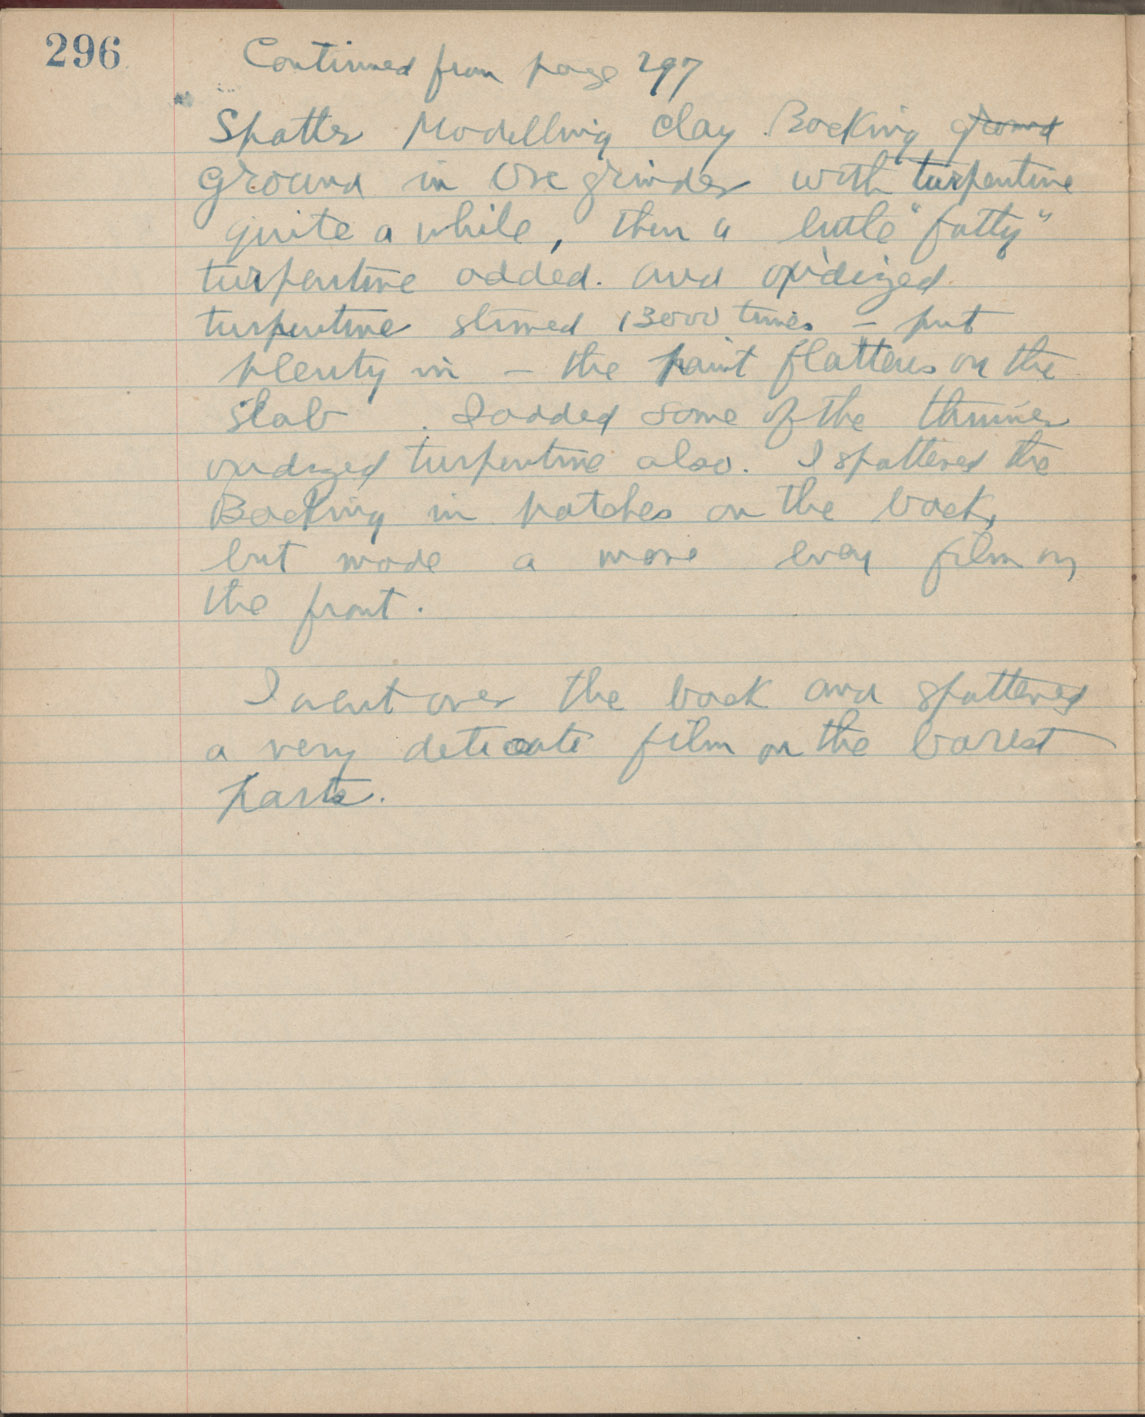 296
Continued from page 297
Spatter Modelling clay Backing ground
ground in Ore grinder with turpentine
quite a while, then a little "fatty"
turpentine added. and oxidized
turpentine stirred 13000 times – put
plenty in – the paint flattens on the
slab. I added some of the thinner
oxidized turpentine also. I spattered the
Backing in patches on the back,
but made a more even film on
the front.
I went over the back and spattered
a very delicate film on the barest
parts.